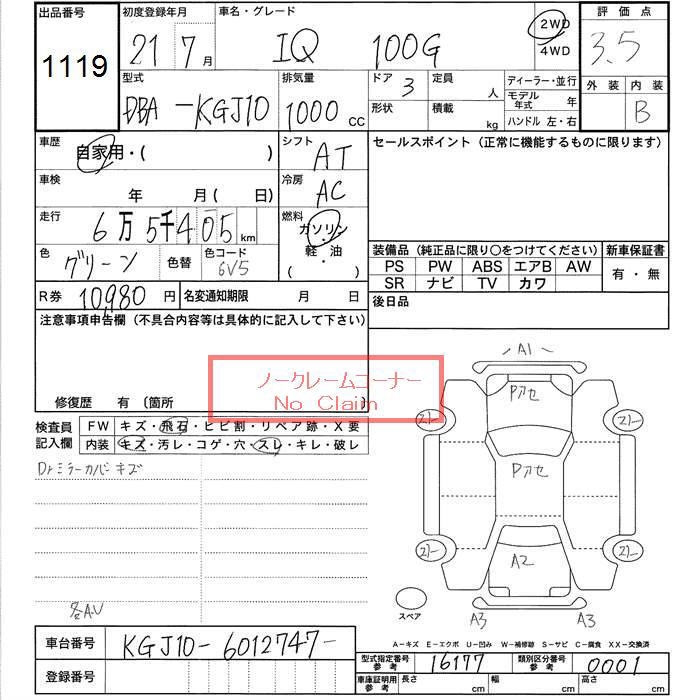 出品番号 初度登録年月 車名・グレード 2WD 評価点
1119 21 7月 IQ 100G 4WD 3.5
型式 排気量 ドア 3 定員 人 ディーラー・並行 外装 内装
DBA-KGJ10 1000 CC 形状 積載 kg モデル年式 年 B
ハンドル 左・右
車歴 自家用・( ) シフト AT セールスポイント(正常に機能するものに限ります)
車検 年 月( 日) 冷房 AC
走行 6万5千405km 燃料 ガソリン・軽・油 ( )
色 グリーン 色替 色コード 6V5 装備品(純正品に限り○をつけてください) 新車保証書
PS PW ABS エアB AW 有・無
SR ナビ TV カワ
R券 10,980円 名変通知期限 月 日 後日品
注意事項申告欄(不具合内容等は具体的に記入して下さい)
ノークレームコーナー
No Claim
修復歴 有(箇所
検査員記入欄 FW キズ・飛石・ヒビ割・リペア跡・X要
内装 キズ・汚レ・コゲ・穴・スレ・キレ・破レ
Drミラーカバーキズ
各AU
A1
Pアセ
Pアセ
A2
A3 A3
スペア
A-キズ E-エクボ U-凹み W-補修跡 S-サビ C-腐食 XX-交換済
車台番号 KGJ10-6012747-
型式指定番号 参考 16177 類別区分番号 参考 0001
登録番号 車庫証明用 参考 長さ cm 幅 cm 高さ cm